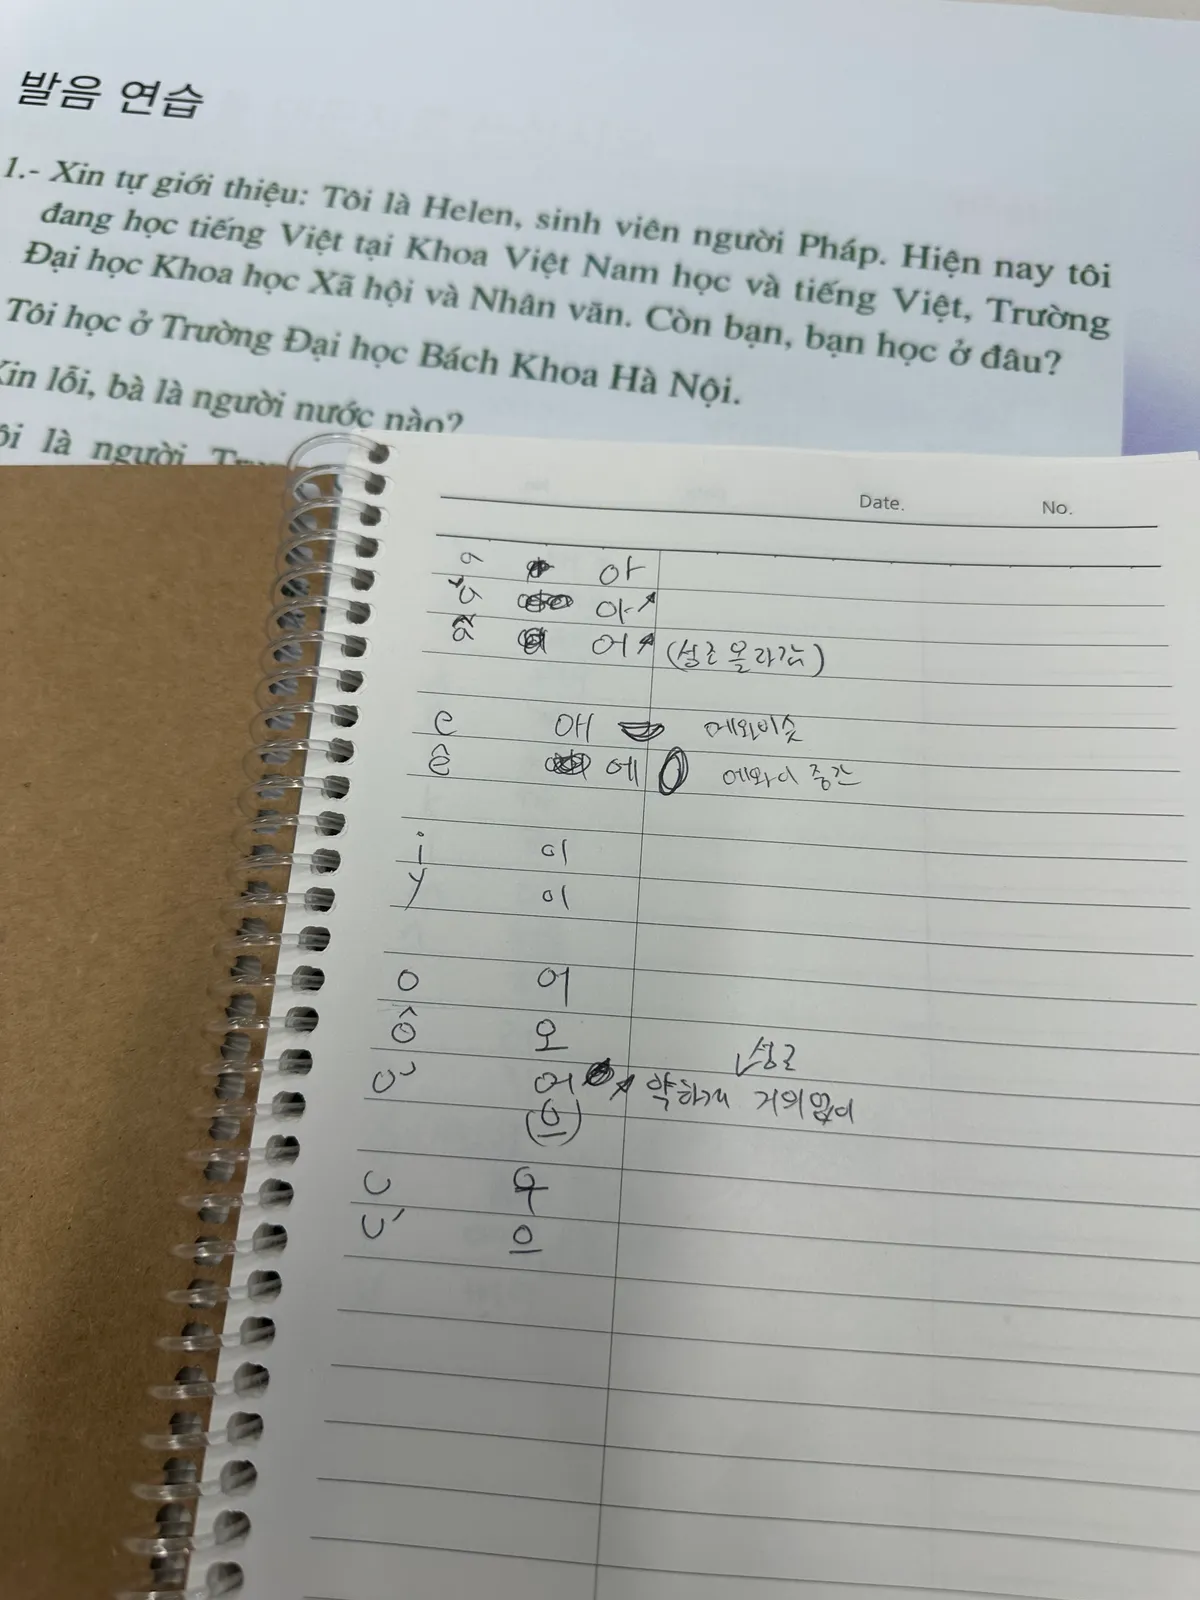 발음 연습
1.- Xin tự giới thiệu: Tôi là Helen, sinh viên người Pháp. Hiện nay tôi
đang học tiếng Việt tại Khoa Việt Nam học và tiếng Việt, Trường
Đại học Khoa học Xã hội và Nhân văn. Còn bạn, bạn học ở đâu?
Tôi học ở Trường Đại học Bách Khoa Hà Nội.
Xin lỗi, bà là người nước nào?
ôi là người
Date. No.
a 아
ă 아↗
â 어↗ (성조 올라감)
e 애
ê 에 에와이 중간
i 이
y 이
o 어
ô 오
성조
ơ 어↗ 약하게 거의없이
(으)
u 우
ư 으